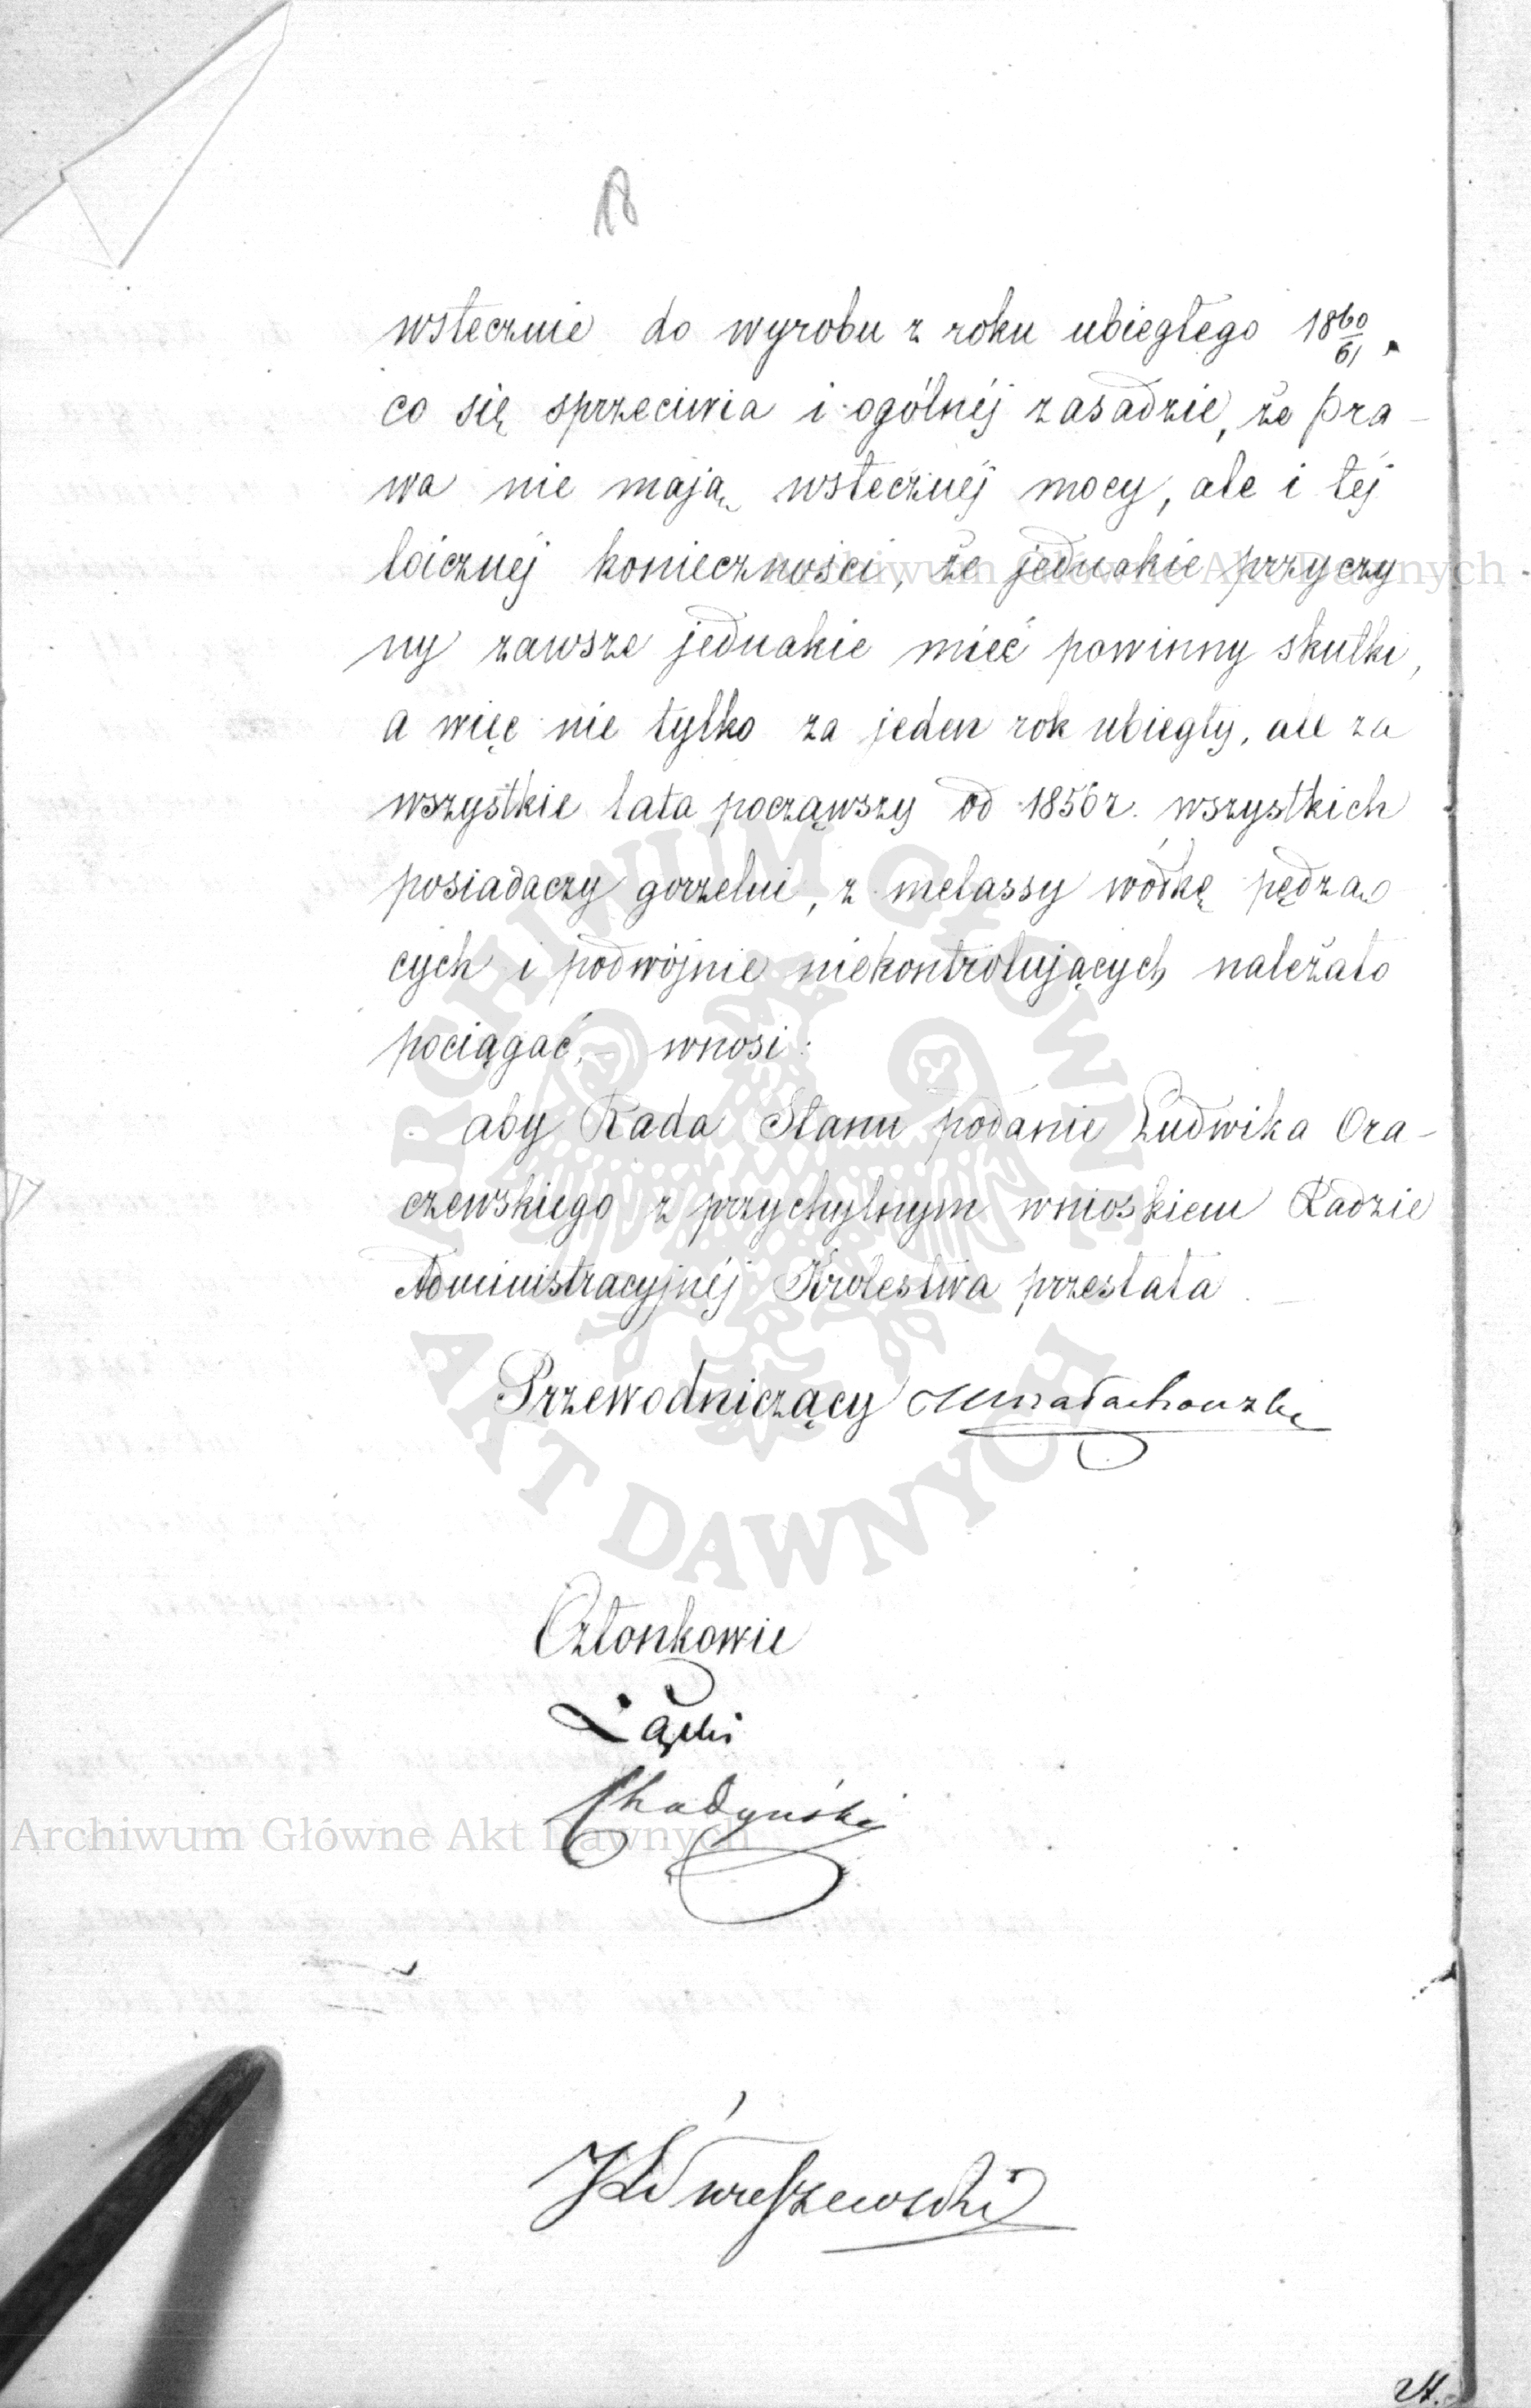 18
wstecznie do wyrobu z roku ubiegłego 18 60/61.
co się sprzeciwia i ogólnéj zasadzie, że pra-
wa nie mają wstecznéj mocy, ale i téj
loicznéj konieczności, że jednakie przyczy
ny zawsze jednakie mieć powinny skutki,
a więc nie tylko za jeden rok ubiegły, ale za
wszystkie lata począwszy od 1850 r. wszystkich
posiadaczy gorzelni, z melassy wódkę pędzą
cych i podwójnie niekontrolujących należało
pociągać, – wnosi:
aby Rada Stanu podanie Ludwika Ora-
czewskiego z przychylnym wnioskiem Radzie
Administracyjnéj Królestwa przesłała. –
Przewodniczący Małachowski
Członkowie
Łącki
Chądzyński
24.
Archiwum Główne Akt Dawnych
Archiwum Główne Akt Dawnych
ARCHIWUM GŁÓWNE
AKT DAWNYCH